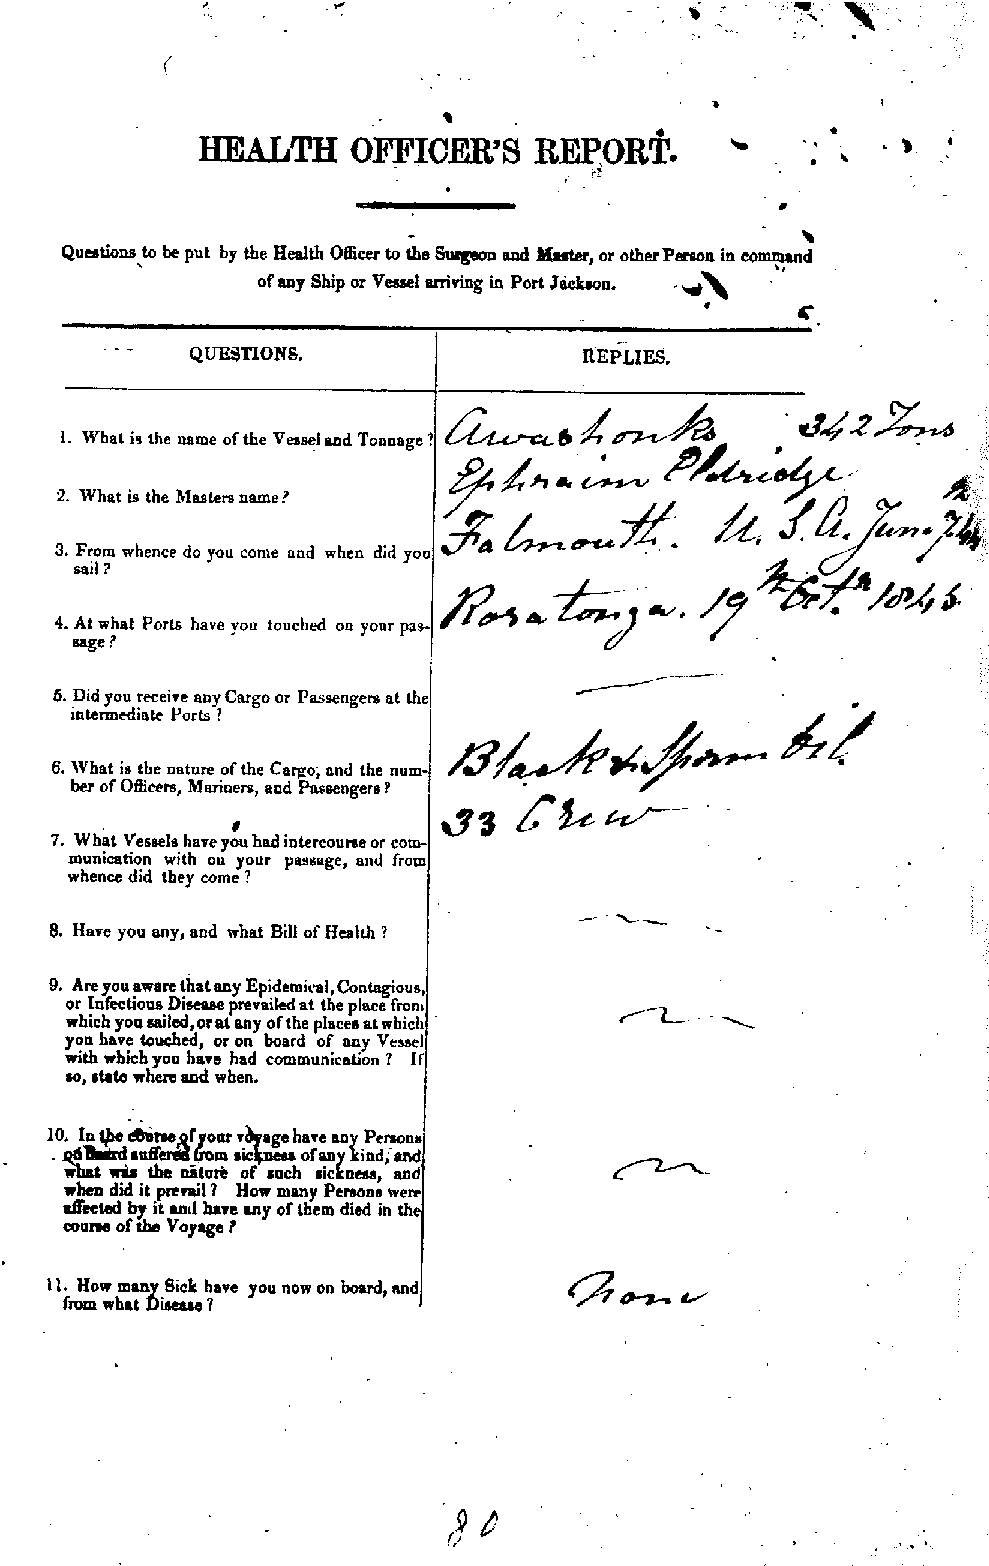 HEALTH OFFICER'S REPORT.
Questions to be put by the Health Officer to the Surgeon and Master, or other Person in command
of any Ship or Vessel arriving in Port Jackson.
QUESTIONS.
REPLIES.
1. What is the name of the Vessel and Tonnage?
Awashonks 342 Tons
2. What is the Masters name?
Ephraim Eldridge
3. From whence do you come and when did you
sail?
Falmouth. U. S. A. June
4. At what Ports have you touched on your pas-
sage?
Roratonga. 19th Octr 1845
5. Did you receive any Cargo or Passengers at the
intermediate Ports?
6. What is the nature of the Cargo, and the num-
ber of Officers, Mariners, and Passengers?
Black & Sperm Oil.
33 Crew
7. What Vessels have you had intercourse or com-
munication with on your passage, and from
whence did they come?
8. Have you any, and what Bill of Health?
9. Are you aware that any Epidemical, Contagious,
or Infectious Disease prevailed at the place from
which you sailed, or at any of the places at which
you have touched, or on board of any Vessel
with which you have had communication? If
so, state where and when.
10. In the course of your voyage have any Persons
on Board suffered from sickness of any kind, and
what was the nature of such sickness, and
when did it prevail? How many Persons were
affected by it and have any of them died in the
course of the Voyage?
11. How many Sick have you now on board, and
from what Disease?
None
80